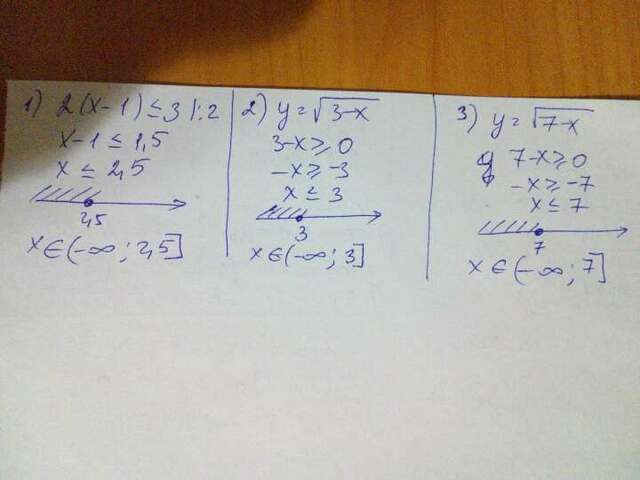 1) 2(x-1) ≤ 3 |:2
x-1 ≤ 1,5
x ≤ 2,5
2,5
x ∈ (-∞; 2,5]
2) y = √(3-x)
3-x ≥ 0
-x ≥ -3
x ≤ 3
3
x ∈ (-∞; 3]
3) y = √(7-x)
7-x ≥ 0
-x ≥ -7
x ≤ 7
7
x ∈ (-∞; 7]